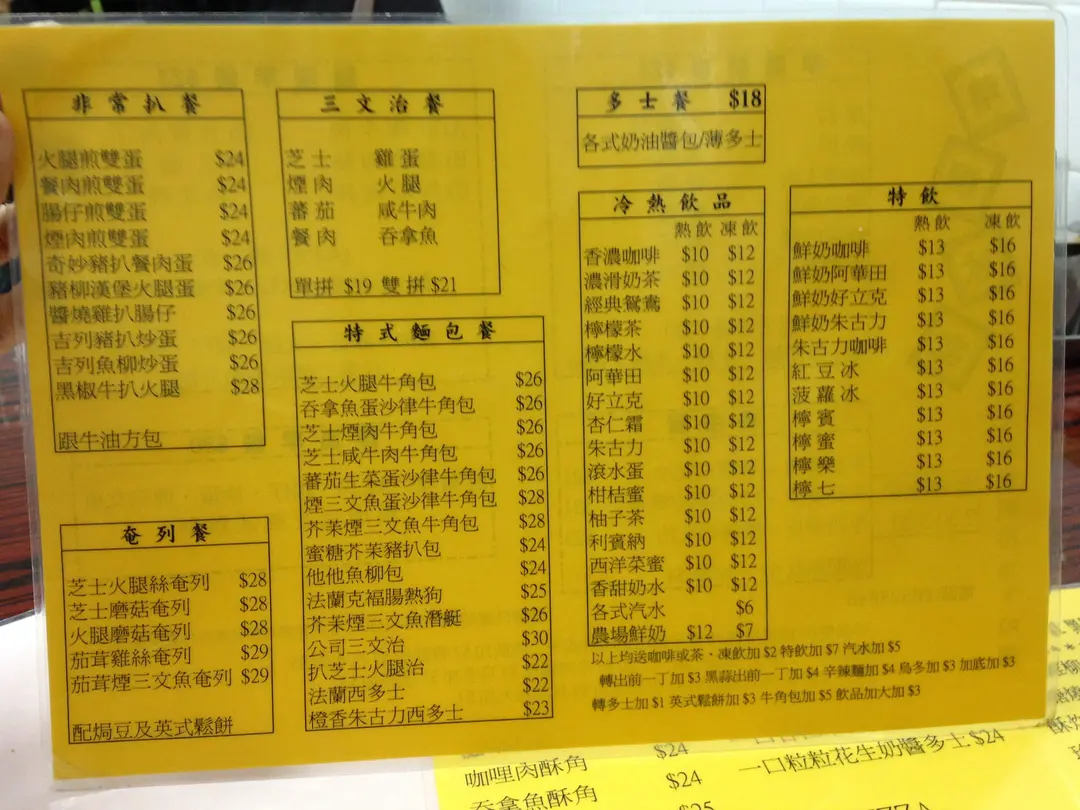 非常扒餐
火腿煎雙蛋 $24
餐肉煎雙蛋 $24
腸仔煎雙蛋 $24
煙肉煎雙蛋 $24
奇妙豬扒餐肉蛋 $26
豬柳漢堡火腿蛋 $26
醬燒雞扒腸仔 $26
吉列豬扒炒蛋 $26
吉列魚柳炒蛋 $26
黑椒牛扒火腿 $28
跟牛油方包
奄列餐
芝士火腿絲奄列 $28
芝士磨菇奄列 $28
火腿磨菇奄列 $28
茄茸雞絲奄列 $29
茄茸煙三文魚奄列 $29
配焗豆及英式鬆餅
三文治餐
芝士 雞蛋
煙肉 火腿
蕃茄 咸牛肉
餐肉 吞拿魚
單拼 $19 雙拼 $21
特式麵包餐
芝士火腿牛角包 $26
吞拿魚蛋沙律牛角包 $26
芝士煙肉牛角包 $26
芝士咸牛肉牛角包 $26
蕃茄生菜蛋沙律牛角包 $26
煙三文魚蛋沙律牛角包 $28
芥茉煙三文魚牛角包 $28
蜜糖芥茉豬扒包 $24
他他魚柳包 $24
法蘭克福腸熱狗 $25
芥茉煙三文魚潛艇 $26
公司三文治 $30
扒芝士火腿治 $22
法蘭西多士 $22
橙香朱古力西多士 $23
多士餐 $18
各式奶油醬包/薄多士
冷熱飲品
熱飲 凍飲
香濃咖啡 $10 $12
濃滑奶茶 $10 $12
經典鴛鴦 $10 $12
檸檬茶 $10 $12
檸檬水 $10 $12
阿華田 $10 $12
好立克 $10 $12
杏仁霜 $10 $12
朱古力 $10 $12
滾水蛋 $10 $12
柑桔蜜 $10 $12
柚子茶 $10 $12
利賓納 $10 $12
西洋菜蜜 $10 $12
香甜奶水 $10 $12
各式汽水 $6
農場鮮奶 $12 $7
特飲
熱飲 凍飲
鮮奶咖啡 $13 $16
鮮奶阿華田 $13 $16
鮮奶好立克 $13 $16
鮮奶朱古力 $13 $16
朱古力咖啡 $13 $16
紅豆冰 $13 $16
菠蘿冰 $13 $16
檸賓 $13 $16
檸蜜 $13 $16
檸樂 $13 $16
檸七 $13 $16
以上均送咖啡或茶、凍飲加 $2 特飲加 $7 汽水加 $5
轉出前一丁加 $3 黑蒜出前一丁加 $4 辛辣麵加 $4 烏冬加 $3 加底加 $3
轉多士加 $1 英式鬆餅加 $3 牛角包加 $5 飲品加大加 $3
$24
咖哩肉酥角 $24
吞拿魚酥角
一口粒粒花生奶醬多士 $24